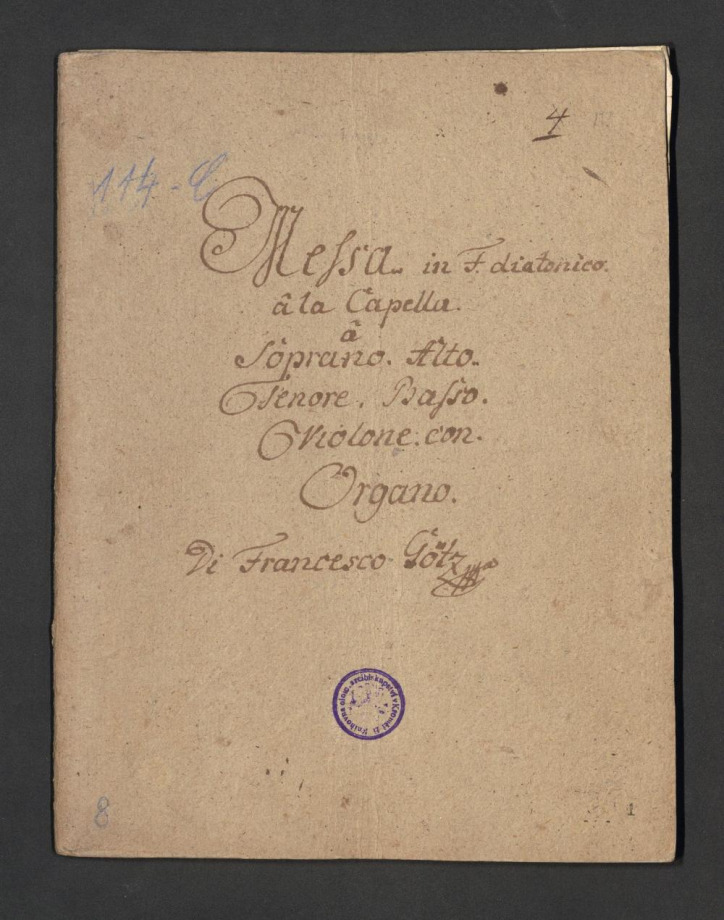 4
114-C
Messa in F. diatonico.
â la Capella.
â
Soprano. Alto.
Tenore. Basso.
Violone. con.
Organo.
Di Francesco Götz
8
1